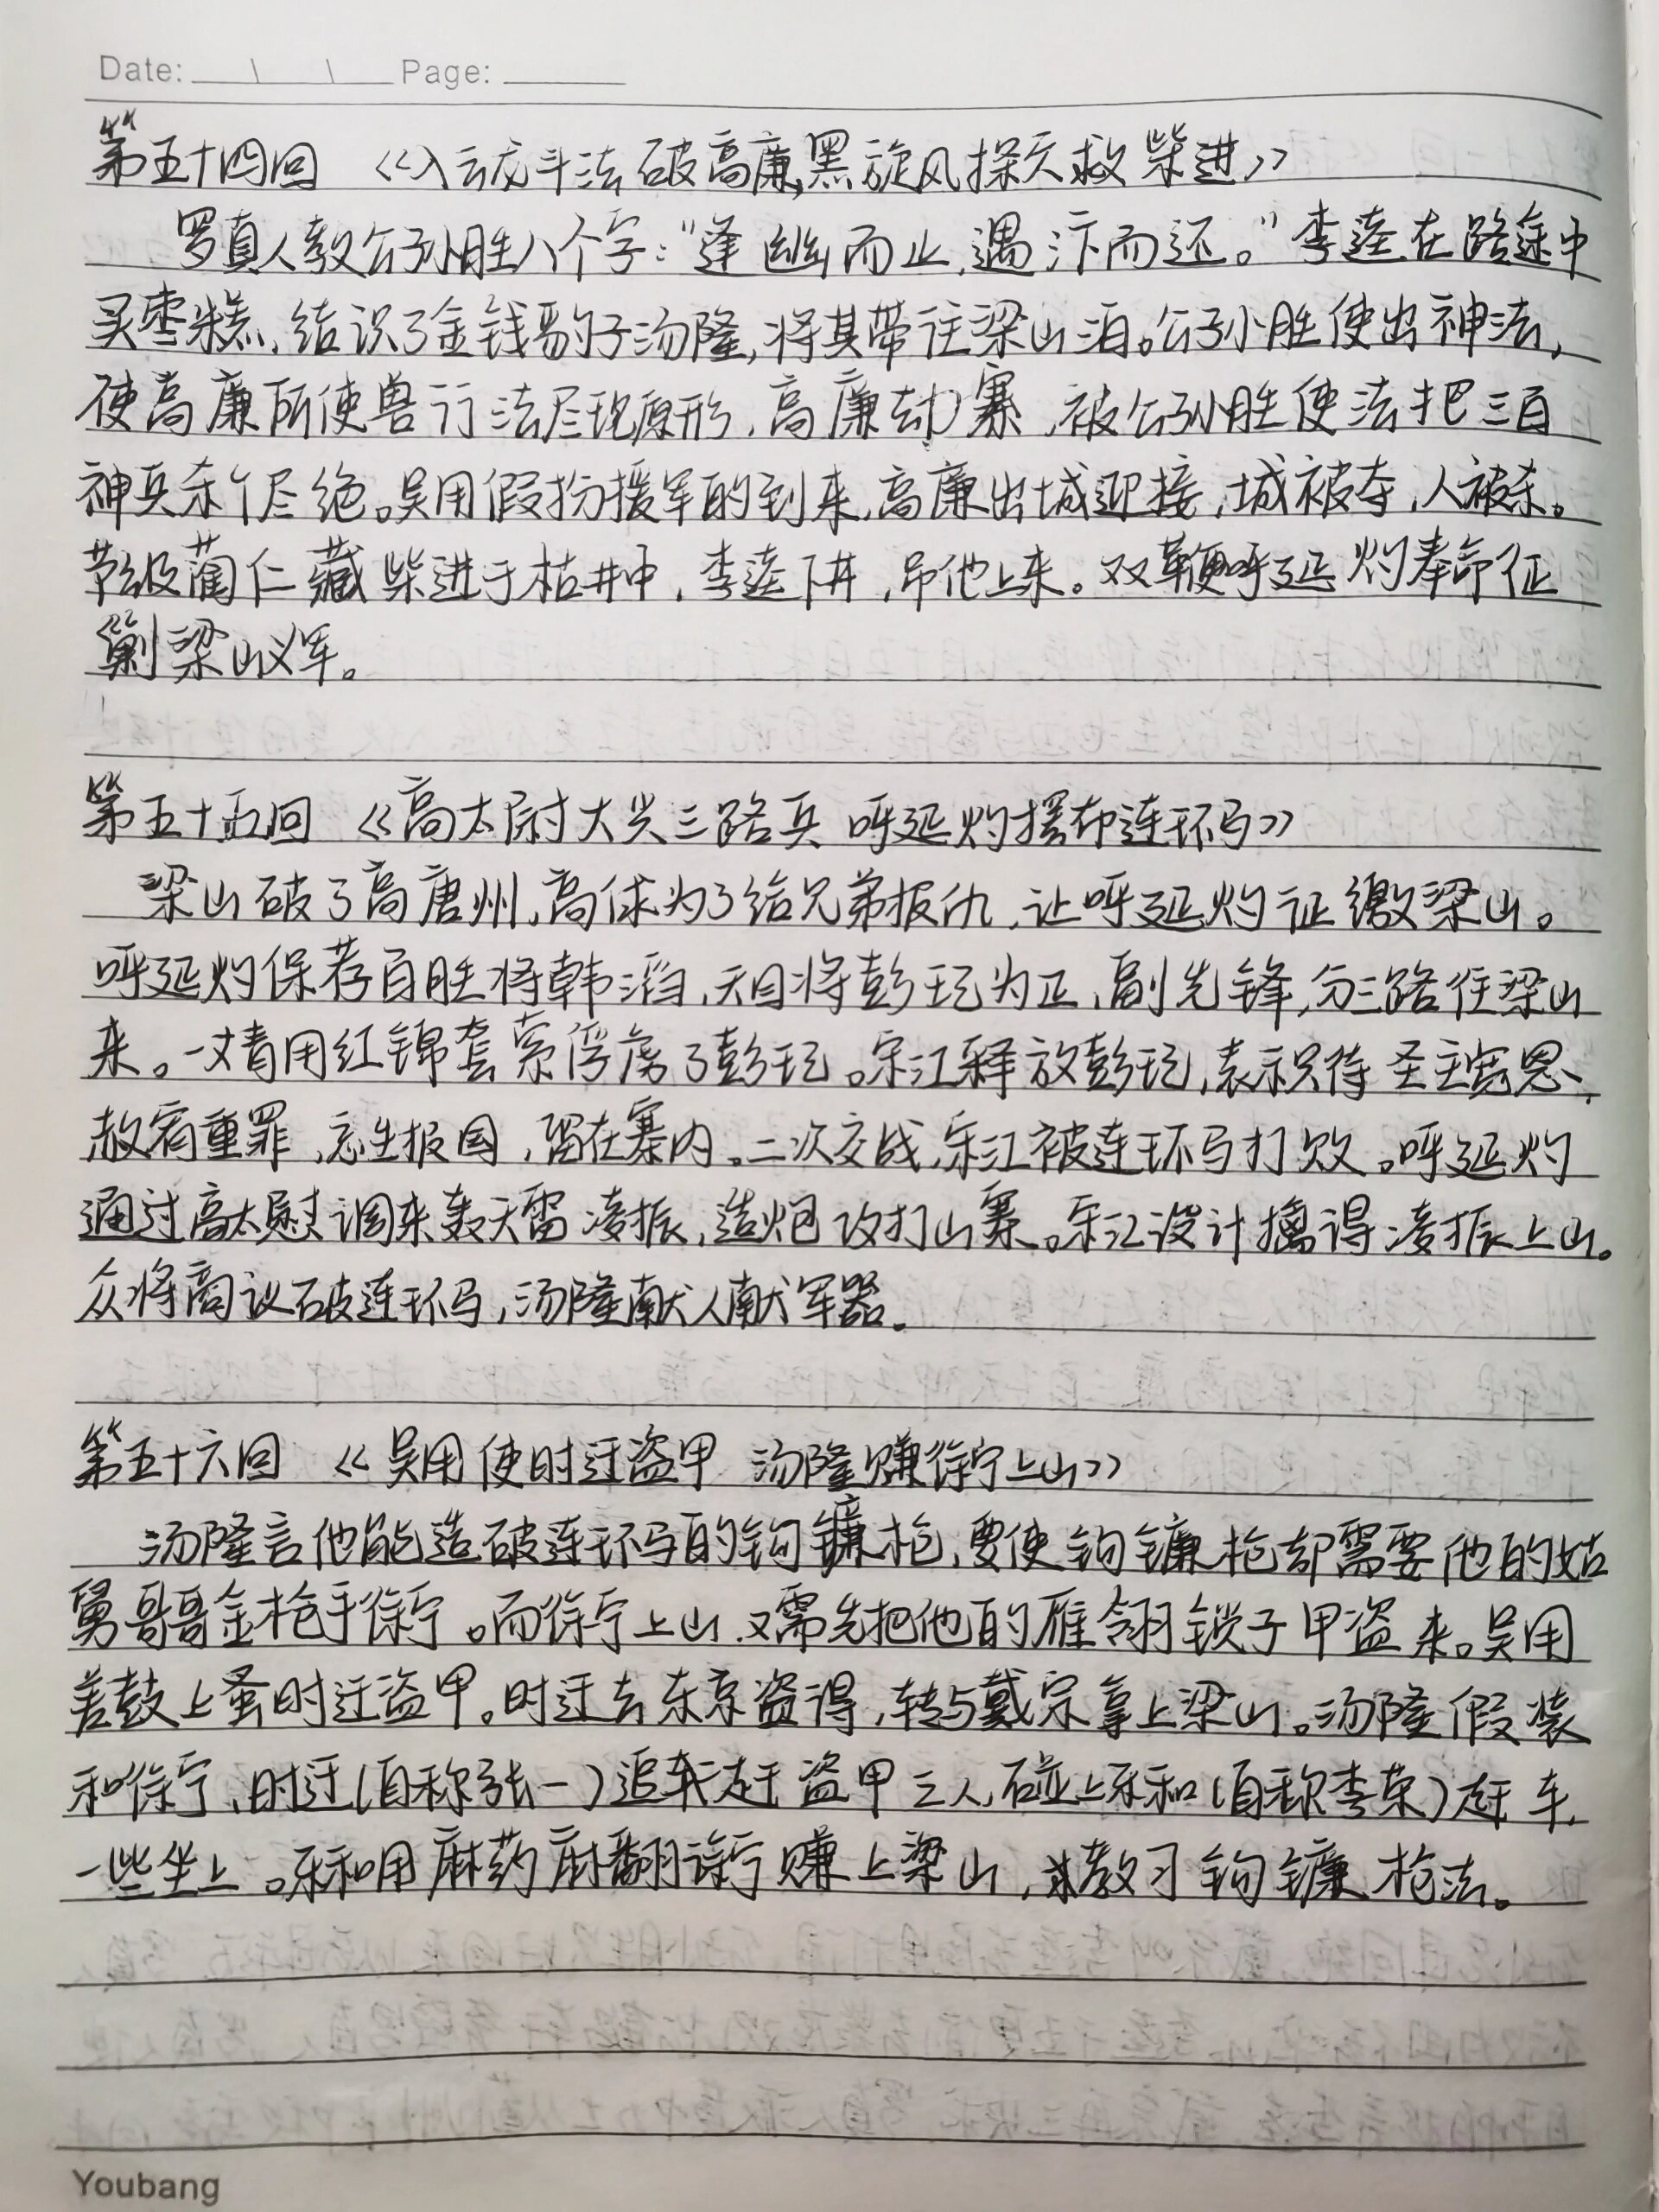 Date: \ \ Page:
第五十四回 《入云龙斗法破高廉,黑旋风探穴救柴进》
罗真人教公孙胜八个字:“逢幽而止,遇汴而还。”李逵在路途中
买枣糕,结识了金钱豹子汤隆,将其带往梁山泊。公孙胜使出神法,
使高廉所使兽行法尽现原形,高廉劫寨,被公孙胜使法把三百
神兵杀个尽绝。吴用假扮援军的到来,高廉出城迎接,城被夺,人被杀。
节级蔺仁藏柴进于枯井中,李逵下井,吊他上来。双鞭呼延灼奉命征
剿梁山义军。
第五十五回 《高太尉大兴三路兵 呼延灼摆布连环马》
梁山破了高唐州,高俅为了给兄弟报仇,让呼延灼证缴梁山。
呼延灼保荐百胜将韩滔、天目将彭玘为正、副先锋,分三路往梁山
来。一丈青用红锦套索俘虏了彭玘。宋江释放彭玘,表示只待圣主宽恩,
赦宥重罪,忘生报国,留在寨内。二次交战,宋江被连环马打败。呼延灼
通过高太尉调来轰天雷凌振,造炮攻打山寨。宋江设计擒得凌振上山。
众将商议破连环马,汤隆献人献军器。
第五十六回 《吴用使时迁盗甲 汤隆赚徐宁上山》
汤隆言他能造破连环马的钩镰枪,要使钩镰枪却需要他的姑
舅哥哥金枪手徐宁。而徐宁上山,又需先把他的雁翎锁子甲盗来。吴用
差鼓上蚤时迁盗甲。时迁去东京盗得,转与戴宗拿上梁山。汤隆假装
和徐宁、时迁(自称张一)追赶盗甲三人,碰上乐和(自称李荣)赶车,
一些坐上。乐和用麻药麻翻徐宁赚上梁山,求教习钩镰枪法。
Youbang